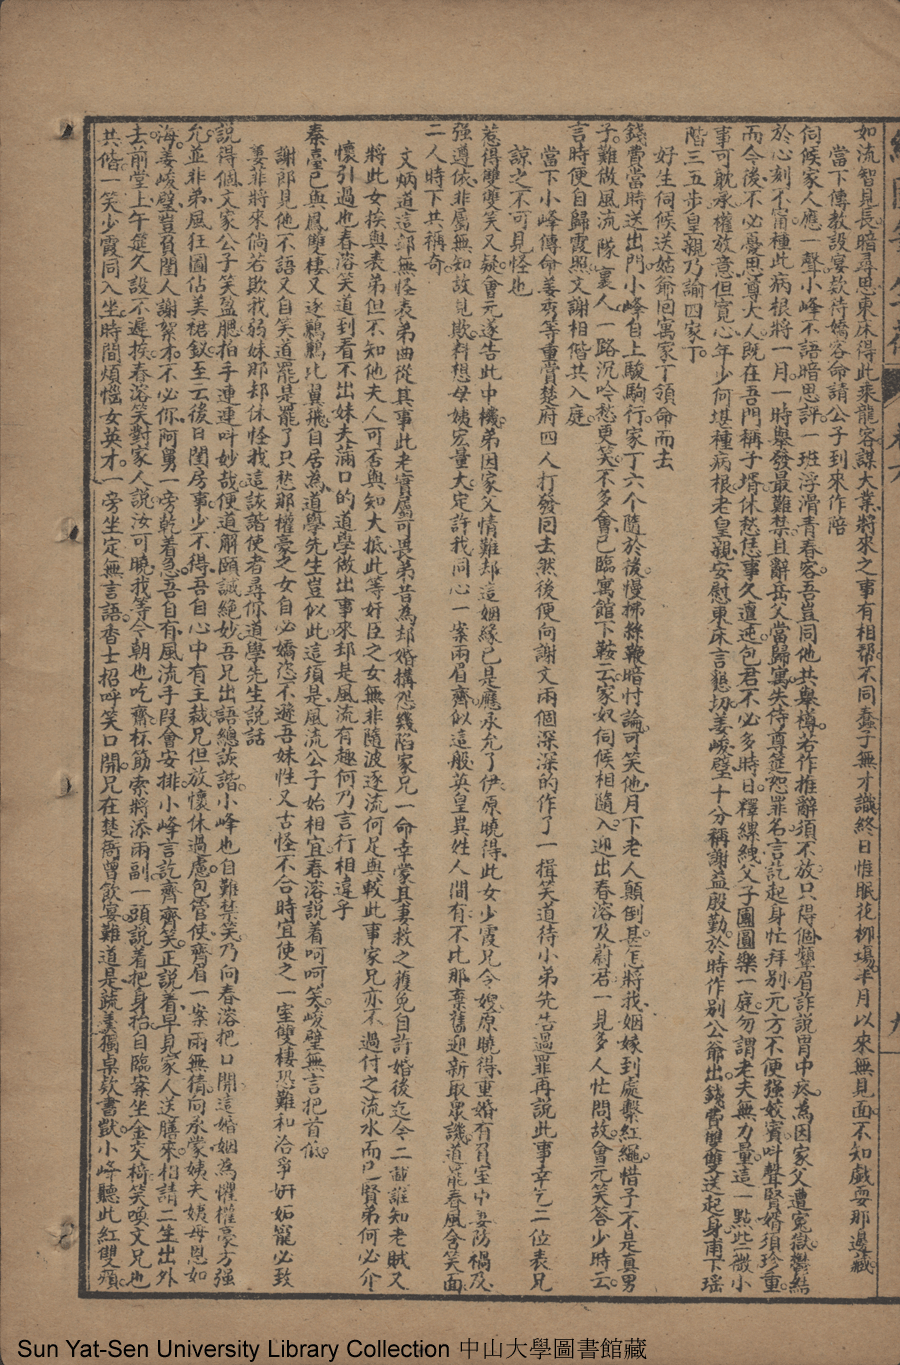 如流智見長暗尋思東床得此乘龍客謀大業將來之事有相帮不同蠢子無才識終日惟眠花柳塲半月以來無見面不知戲耍那邊藏
當下傳教設宴欵待嬌客命請公子到來作陪
伺候家人應一聲小峰不語暗思評一班浮滑青春客吾豈同他共舉樽若作推辭須不放只得個顰眉詐說胃中疼為因家父遭冤獄鬱結
於心刻不甯種此病根將一月一時舉發最難禁且辭岳父當歸寓失侍尊筵恕罪名言訖起身忙拜別元方不便强較賓呌聲賢婿須珍重
而今後不必憂思尊大人既在吾門稱子壻休愁恁事久遭迍包君不必多時日釋縲絏父子團圓樂一庭勿謂老夫無力量這一點些微小
事可躭承權放意但寬心年少何堪種病根老皇親安慰東床言懇切姜峻壁十分稱謝益殷勤於時作別公爺出錢費雙雙送起身甫下瑤
階三五步皇親乃諭四家丁
好生伺候送姑爺回寓家丁領命而去
錢費當時送出門小峰自上駿駒行家丁六个隨於後慢拂絲鞭暗忖論可笑他月下老人顛倒甚怎將我姻嫁到處繫紅繩惜子不是真男
子難做風流隊裏人一路沉吟愁更笑不多會已臨寓館下鞍云家奴伺候相隨入迎出春溶及蔚君一見多人忙問故會元笑答少時云
言時便自歸霞照文謝相偕共入庭
當下小峰傳命姜秀等重賞楚府四人打發回去然後便向謝文兩個深深的作了一揖笑道待小弟先告過罪再說此事幸乞二位表兄
諒之不可見怪也
惹得雙雙笑又疑會元遂告此中機弟因家父情難却這姻緣已是應承允了伊原曉得此女少霞兄令嫂原曉得重婚有負室中妻防禍及
强遵依非屬無知故見欺料想母姨宏量大定許我同心一案兩眉齊似這般英皇異姓人間有不比那棄舊迎新取眾譏道罷春風含笑面
二人時下共稱奇
文炳道這却無怪表弟曲從其事此老實屬可畏弟昔為却婚構怨幾陷家兄一命幸蒙其妻救之復免自許婚後迄今二載誰知老賊又
將此女挨與表弟但不知他夫人可否與知大抵此等奸臣之女無非隨波逐流何足與較此事家兄亦不過付之流水而已賢弟何必介
懷引過也春溶笑道到看不出妹夫滿口的道學做出事來却是風流有趣何乃言行相違乎
秦臺已與鳳雛棲又逐鶼鶼比翼飛自居為道學先生豈似此這須是風流公子始相宜春溶說着呵呵笑峻壁無言把首低
謝郎見他不語又自笑道罷是罷了只愁那權豪之女自必嬌恣不遜吾妹性又古怪不合時宜使之一室雙棲恐難和洽爭妍妬寵必致
萋菲將來倘若欺我弱妹那却休怪我這詼諧使者尋你道學先生說話
說得個文家公子笑盈腮拍手連連呌妙哉便道解頤誠絕妙吾兄出語總詼諧小峰也自難禁笑乃向春溶把口開這婚姻為懼權豪方强
允並非弟風狂圖佔美裙釵至云後日閨房事少不得吾自心中有主裁兄但放懷休過慮包管使齊眉一案兩無猜向承蒙姨夫姨母恩如
海姜峻壁豈負閨人謝絮才不必你阿舅一旁乾着急吾自有風流手段會安排小峰言訖齊齊笑正說着早見家人送膳來相請二生出外
去前堂上午筵久設不遲挨春溶笑對家人說汝可曉我等今朝也吃齋杯筯索將添兩副一頭說着把身抬自臨案坐金交椅笑喚文兄也
共偕一笑少霞同入坐時間煩惱女英才一旁坐定無言語杏士招呼笑口開兄在楚衙曾飲宴難道是蔬羹獨桌欵書獃小峰聽此紅雙頰
Sun Yat-Sen University Library Collection 中山大學圖書館藏